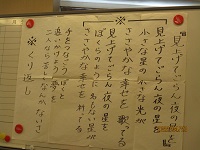 『見上げてごらん夜の星を』
見上げてごらん夜の星を
小さな星の小さな光が
ささやかな幸せを歌ってる
見上げてごらん夜の星を
ぼくらのように名もない星が
ささやかな幸せを祈ってる
手をつなごうぼくと
追いかけよう夢を
二人なら苦しくなんかないさ
※くり返し